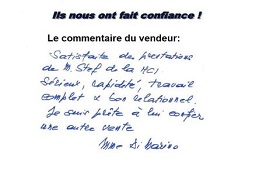 Ils nous ont fait confiance !
Le commentaire du vendeur:
Satisfaite des prestations
de M. Stef de la HCI
Sérieux, rapidité, travail
complet & bon relationnel.
Je suis prête à lui confier
une autre vente
Mme Di Marino